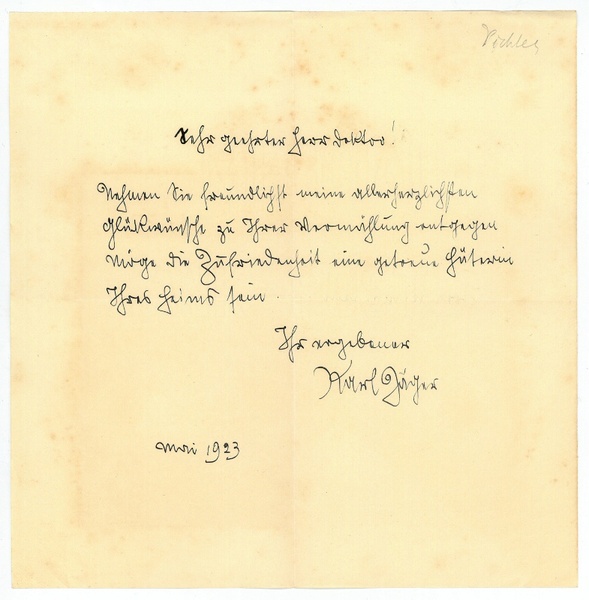 Pichler
Sehr geehrter Herr Doktor!
Nehmen Sie freundlichst meine allerherzlichsten
Glückwünsche zu Ihrer Vermählung entgegen
Möge die Zufriedenheit eine getreue Hüterin
Ihres Heims sein.
Ihr ergebener
Karl Jäger
Mai 1923